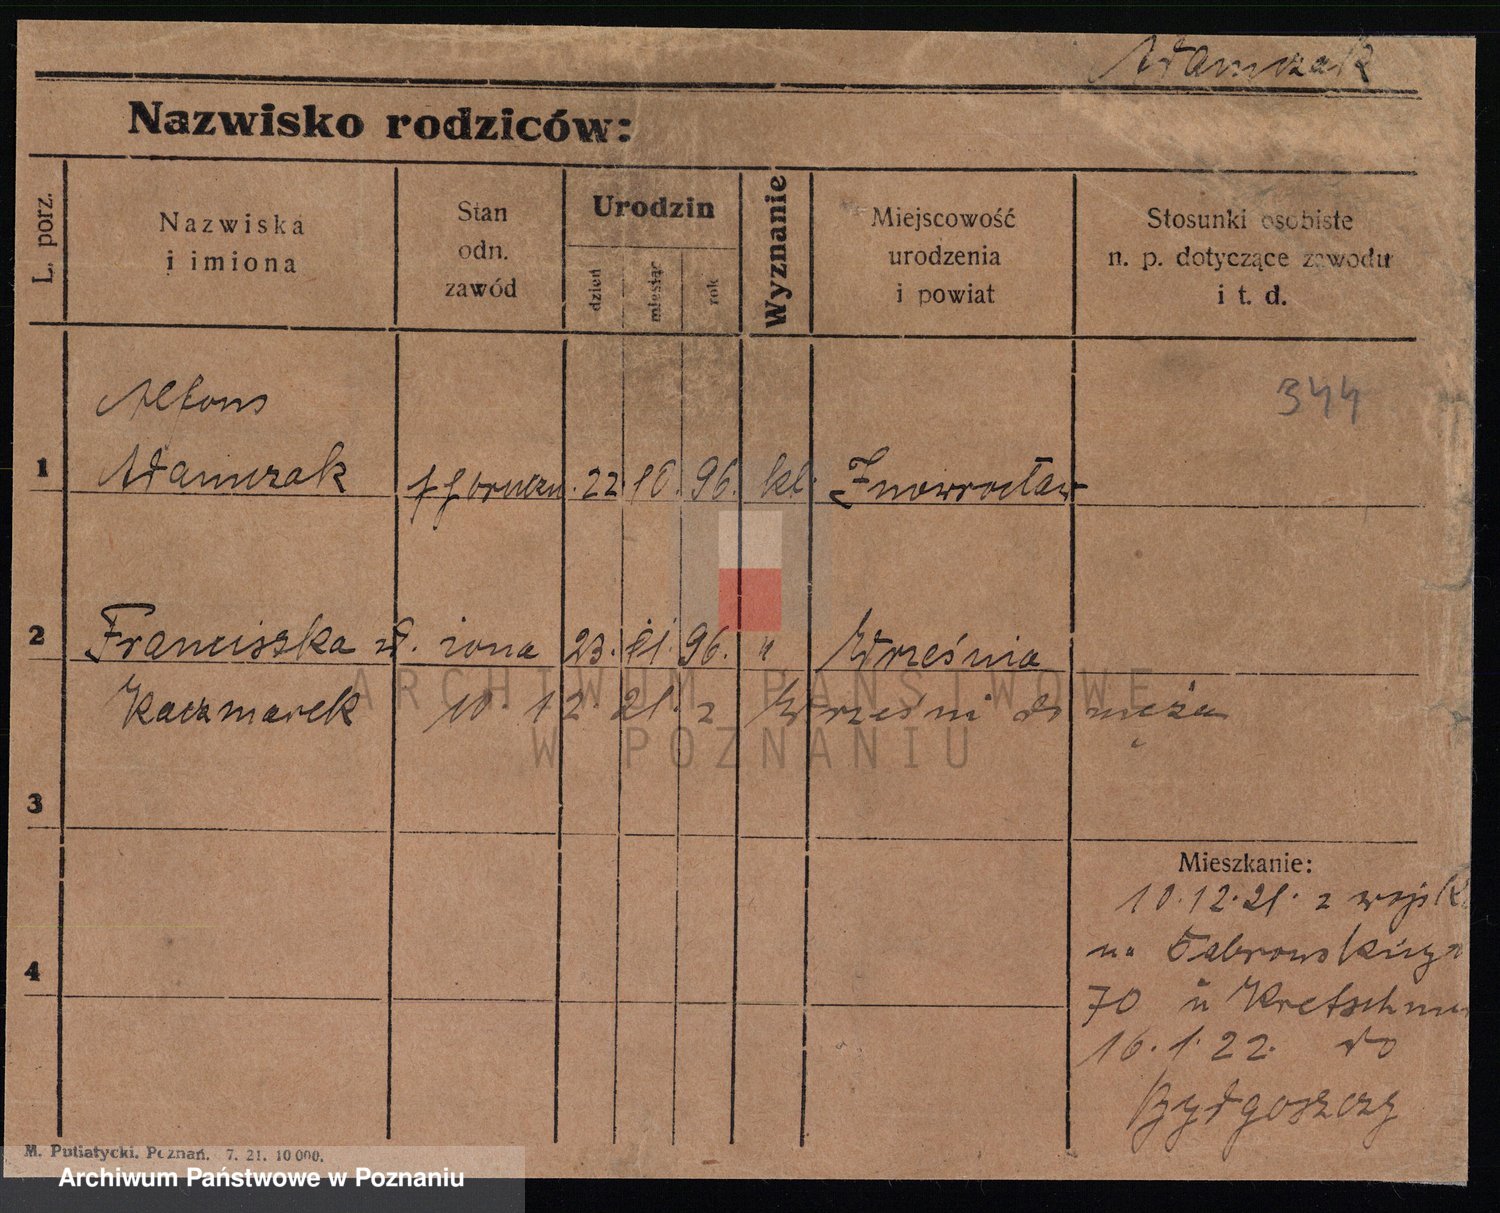 Adamczak
Nazwisko rodziców:
L. porz.
Nazwiska
i imiona
Stan
odn.
zawód
Urodzin
dzień
miesiąc
rok
Wyznanie
Miejscowość
urodzenia
i powiat
Stosunki osobiste
n. p. dotyczące zawodu
i t. d.
344
Alfons
1 Adamczak 22. 96. kt. Inowrocław
2 Franciszka żona 23. 96. " Września
Kaczmarek 10. 12. 21. z Wrześni do męża
3
4
Mieszkanie:
10. 12. 21. z wojsk
na Dąbrowskiego
70 u Kretschmer
16. 1. 22. do
Bydgoszczy
ARCHIWUM PAŃSTWOWE
W POZNANIU
M. Putiatycki. Poznań. 7. 21. 10 000.
Archiwum Państwowe w Poznaniu